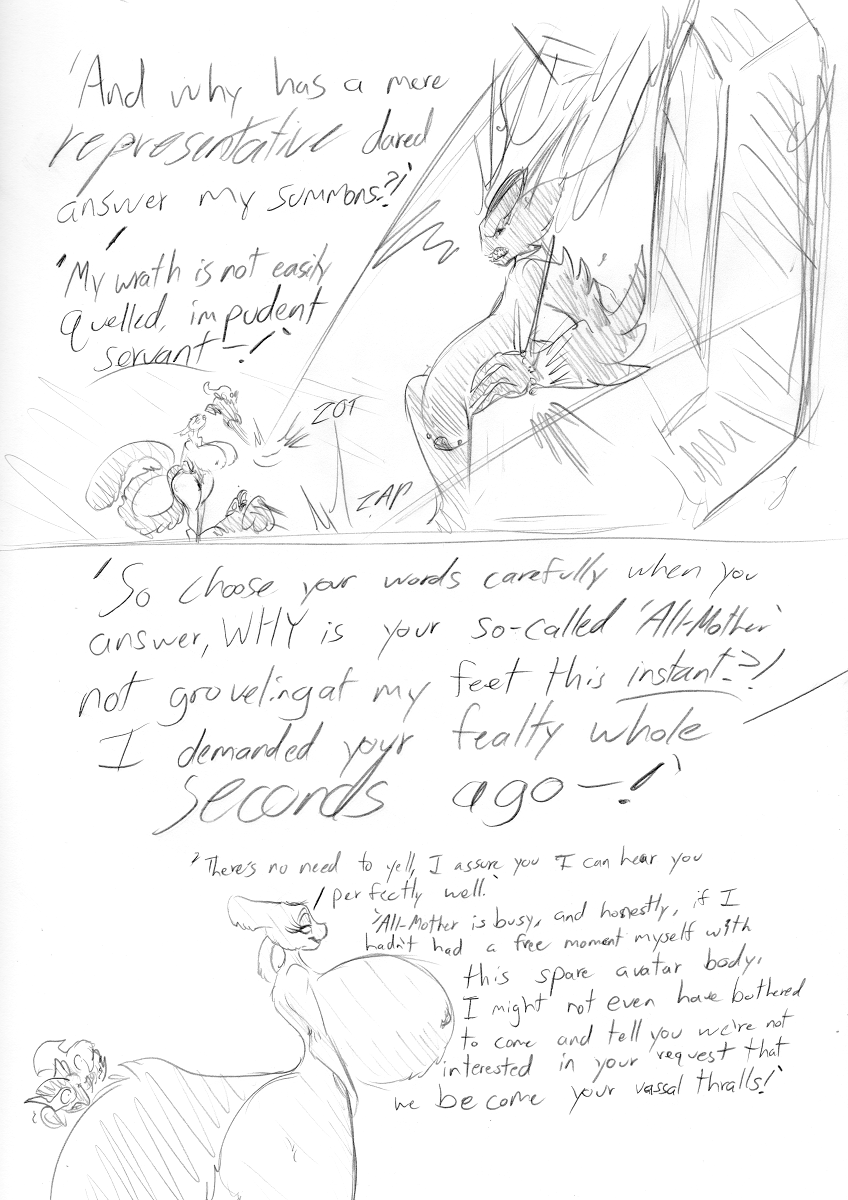 'And why has a mere
representative dared
answer my summons?!'
'My wrath is not easily
quelled, impudent
servant-!'
ZOT
ZAP
'So choose your words carefully when you
answer, WHY is your so-called 'All-Mother'
not groveling at my feet this instant?!
I demanded your fealty whole
seconds ago-!'
'There's no need to yell, I assure you I can hear you
perfectly well.'
'All-Mother is busy, and honestly, if I
hadn't had a free moment myself with
this spare avatar body,
I might not even have bothered
to come and tell you we're not
interested in your request that
we become your vassal thralls!'